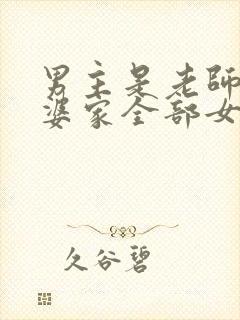 男主是老師
婆家全部女
久谷碧